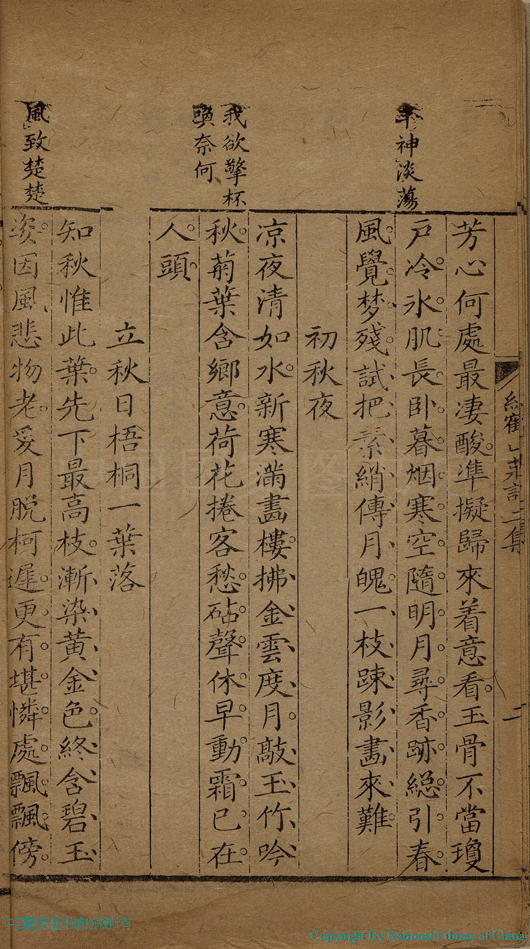 芳心何處最凄酸準擬歸來着意看玉骨不當瓊
戶冷氷肌長卧暮烟寒空隨明月尋香跡總引春
風覺梦殘試把素綃傳月魄一枝踈影畵來難
初秋夜
凉夜清如水新寒滿畵樓拂金雲度月敲玉竹吟
秋菊葉含鄉意荷花捲客愁砧聲休早動霜已在
人頭
立秋日梧桐一葉落
知秋惟此葉先下最高枝漸染黃金色終含碧玉
姿因風悲物老愛月脫柯遲更有堪憐處飄飄傍
丰神淡蕩
我欲擎杯
喚奈何
風致楚楚
二集
二
Copyright by National Library of China